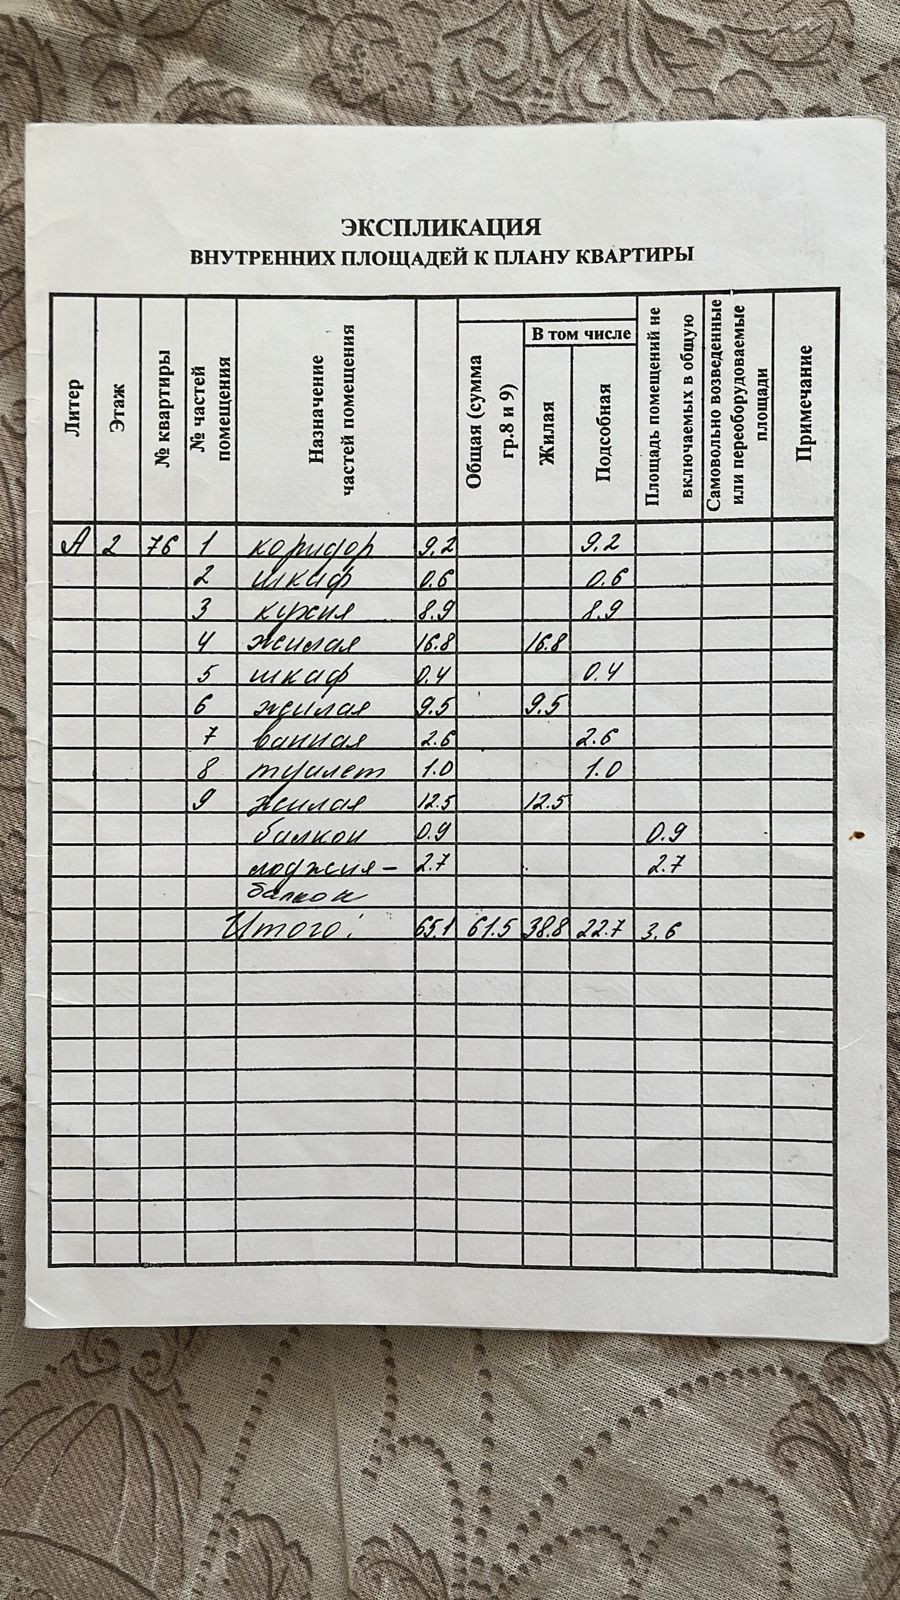 ЭКСПЛИКАЦИЯ
ВНУТРЕННИХ ПЛОЩАДЕЙ К ПЛАНУ КВАРТИРЫ
Литер
Этаж
№ квартиры
№ частей
помещения
Назначение
частей помещения
Общая (сумма
гр.8 и 9)
В том числе
Жилая
Подсобная
Площадь помещений не
включаемых в общую
Самовольно возведенные
или переоборудоваемые
площади
Примечание
А 2 76 1 коридор 9.2 9.2
2 шкаф 0.6 0.6
3 кухня 8.9 8.9
4 жилая 16.8 16.8
5 шкаф 0.4 0.4
6 жилая 9.5 9.5
7 ванная 2.6 2.6
8 туалет 1.0 1.0
9 жилая 12.5 12.5
балкон 0.9 0.9
лоджия- 2.7 2.7
балкон
Итого: 65.1 61.5 38.8 22.7 3.6